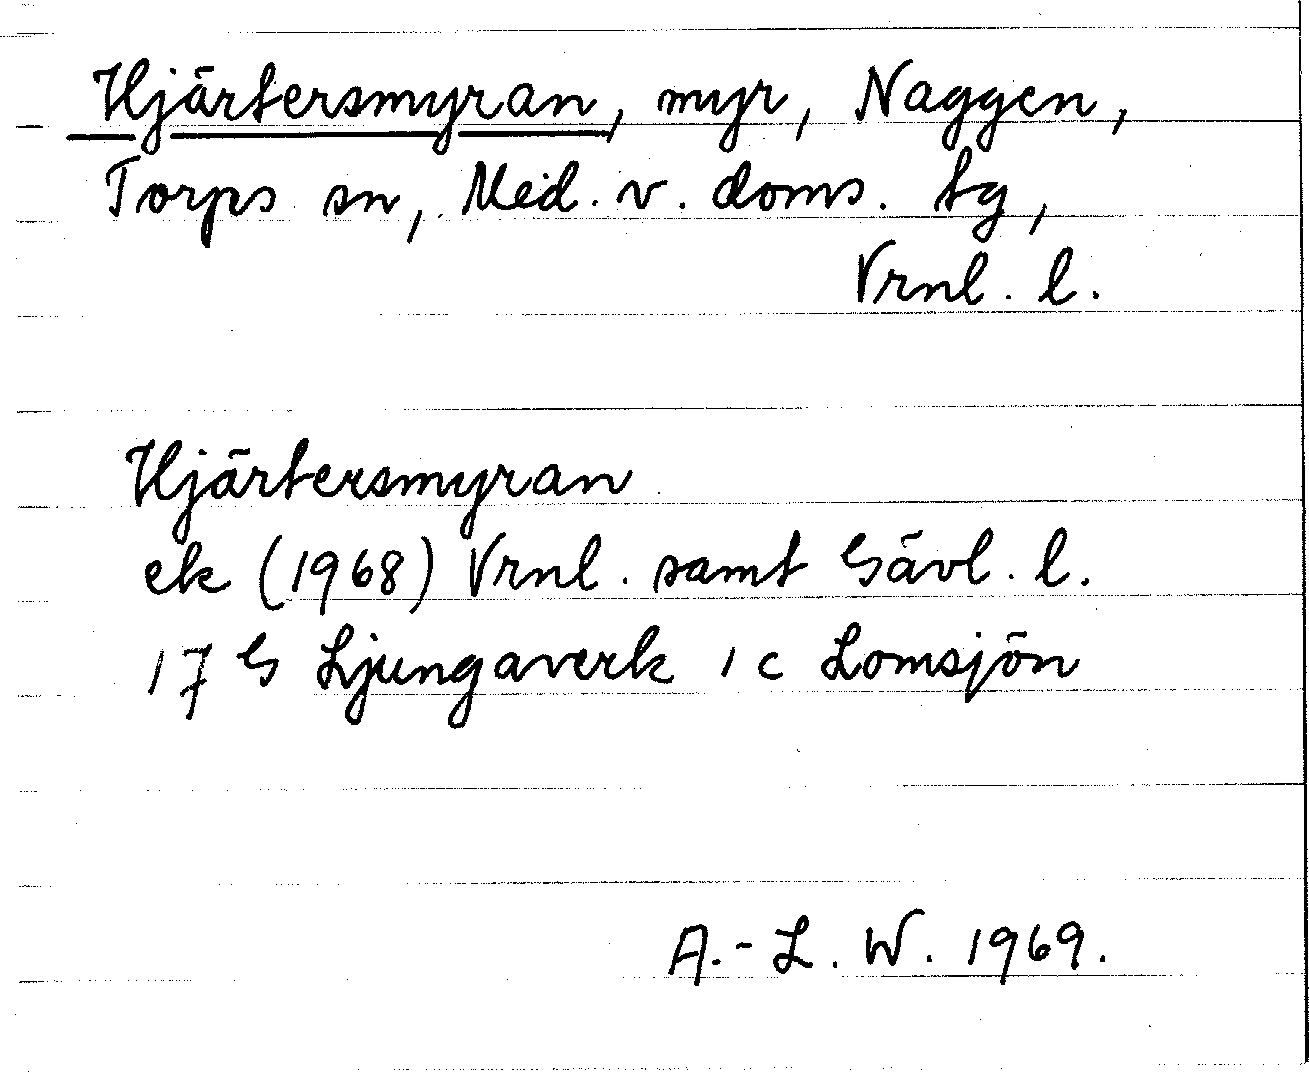 Hjärtersmyran, myr, Naggen,
Torps sn, Med. v. doms. tg,
Vrnl. l.
Hjärtersmyran
ek (1968) Vrnl. samt Gävl. l.
17 G Ljungaverk 1 c Lomsjön
A.-L. W. 1969.